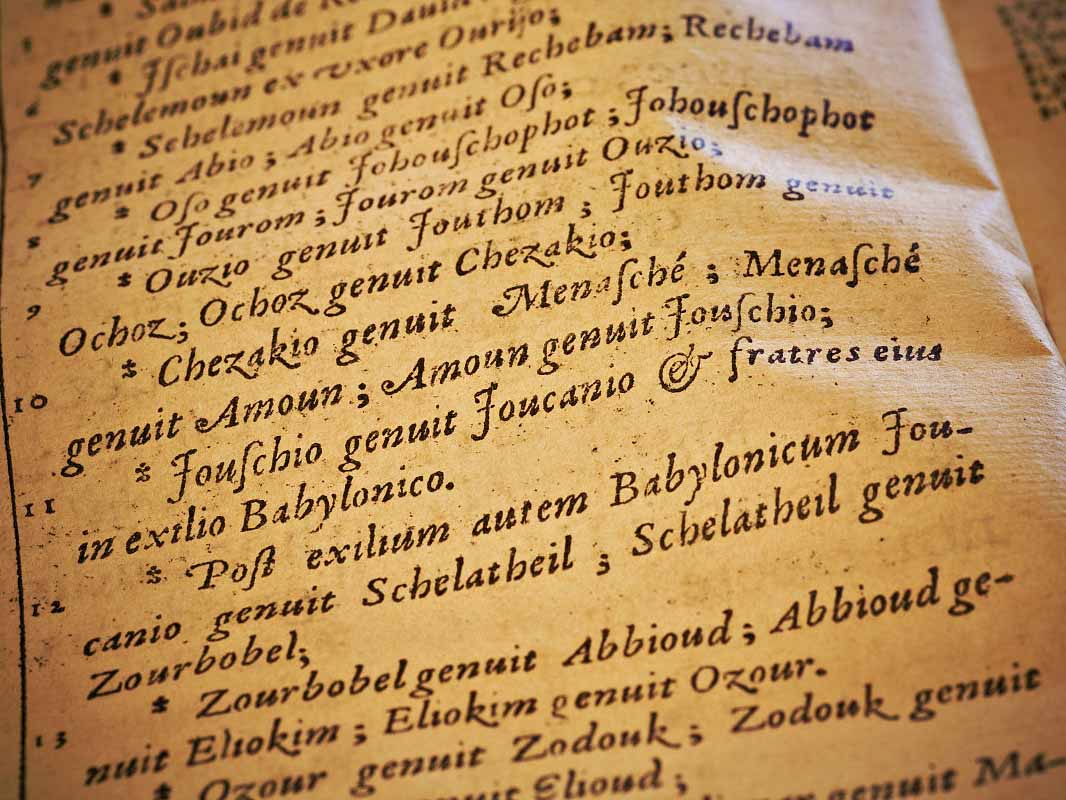 genuit Oubid de
5 * Jſchai genuit Dauid
Schelemoun ex vxore Ourijo;
6 * Schelemoun genuit Rechebam; Rechebam
genuit Abio; Abio genuit Oſo;
7 * Oſo genuit Johouſchophot; Johouſchophot
genuit Jourom; Jourom genuit Ouzio;
8 * Ouzio genuit Jouthom; Jouthom genuit
Ochoz; Ochoz genuit Chezakio;
9 * Chezakio genuit Menaſché; Menaſché
genuit Amoun; Amoun genuit Jouſchio;
10 * Jouſchio genuit Joucanio & fratres eius
11 in exilio Babylonico.
* Poſt exilium autem Babylonicum Jou-
12 canio genuit Schelatheil; Schelatheil genuit
Zourbobel;
13 * Zourbobel genuit Abbioud; Abbioud ge-
nuit Eliokim; Eliokim genuit Ozour.
* Ozour genuit Zodouk; Zodouk genuit
Elioud; genuit Ma-